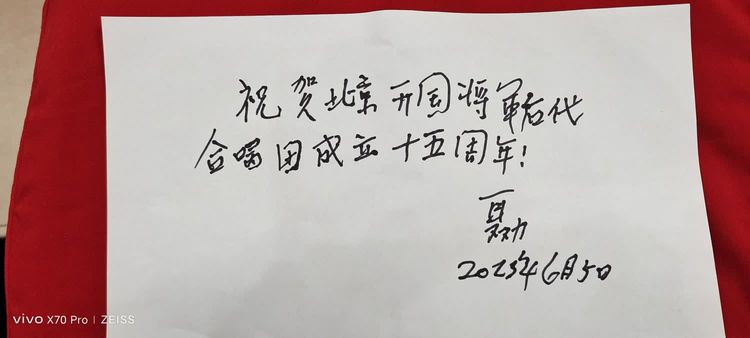 祝贺北京开国将军后代
合唱团成立十五周年!
聂力
2023年6月5日
vivo X70 Pro | ZEISS